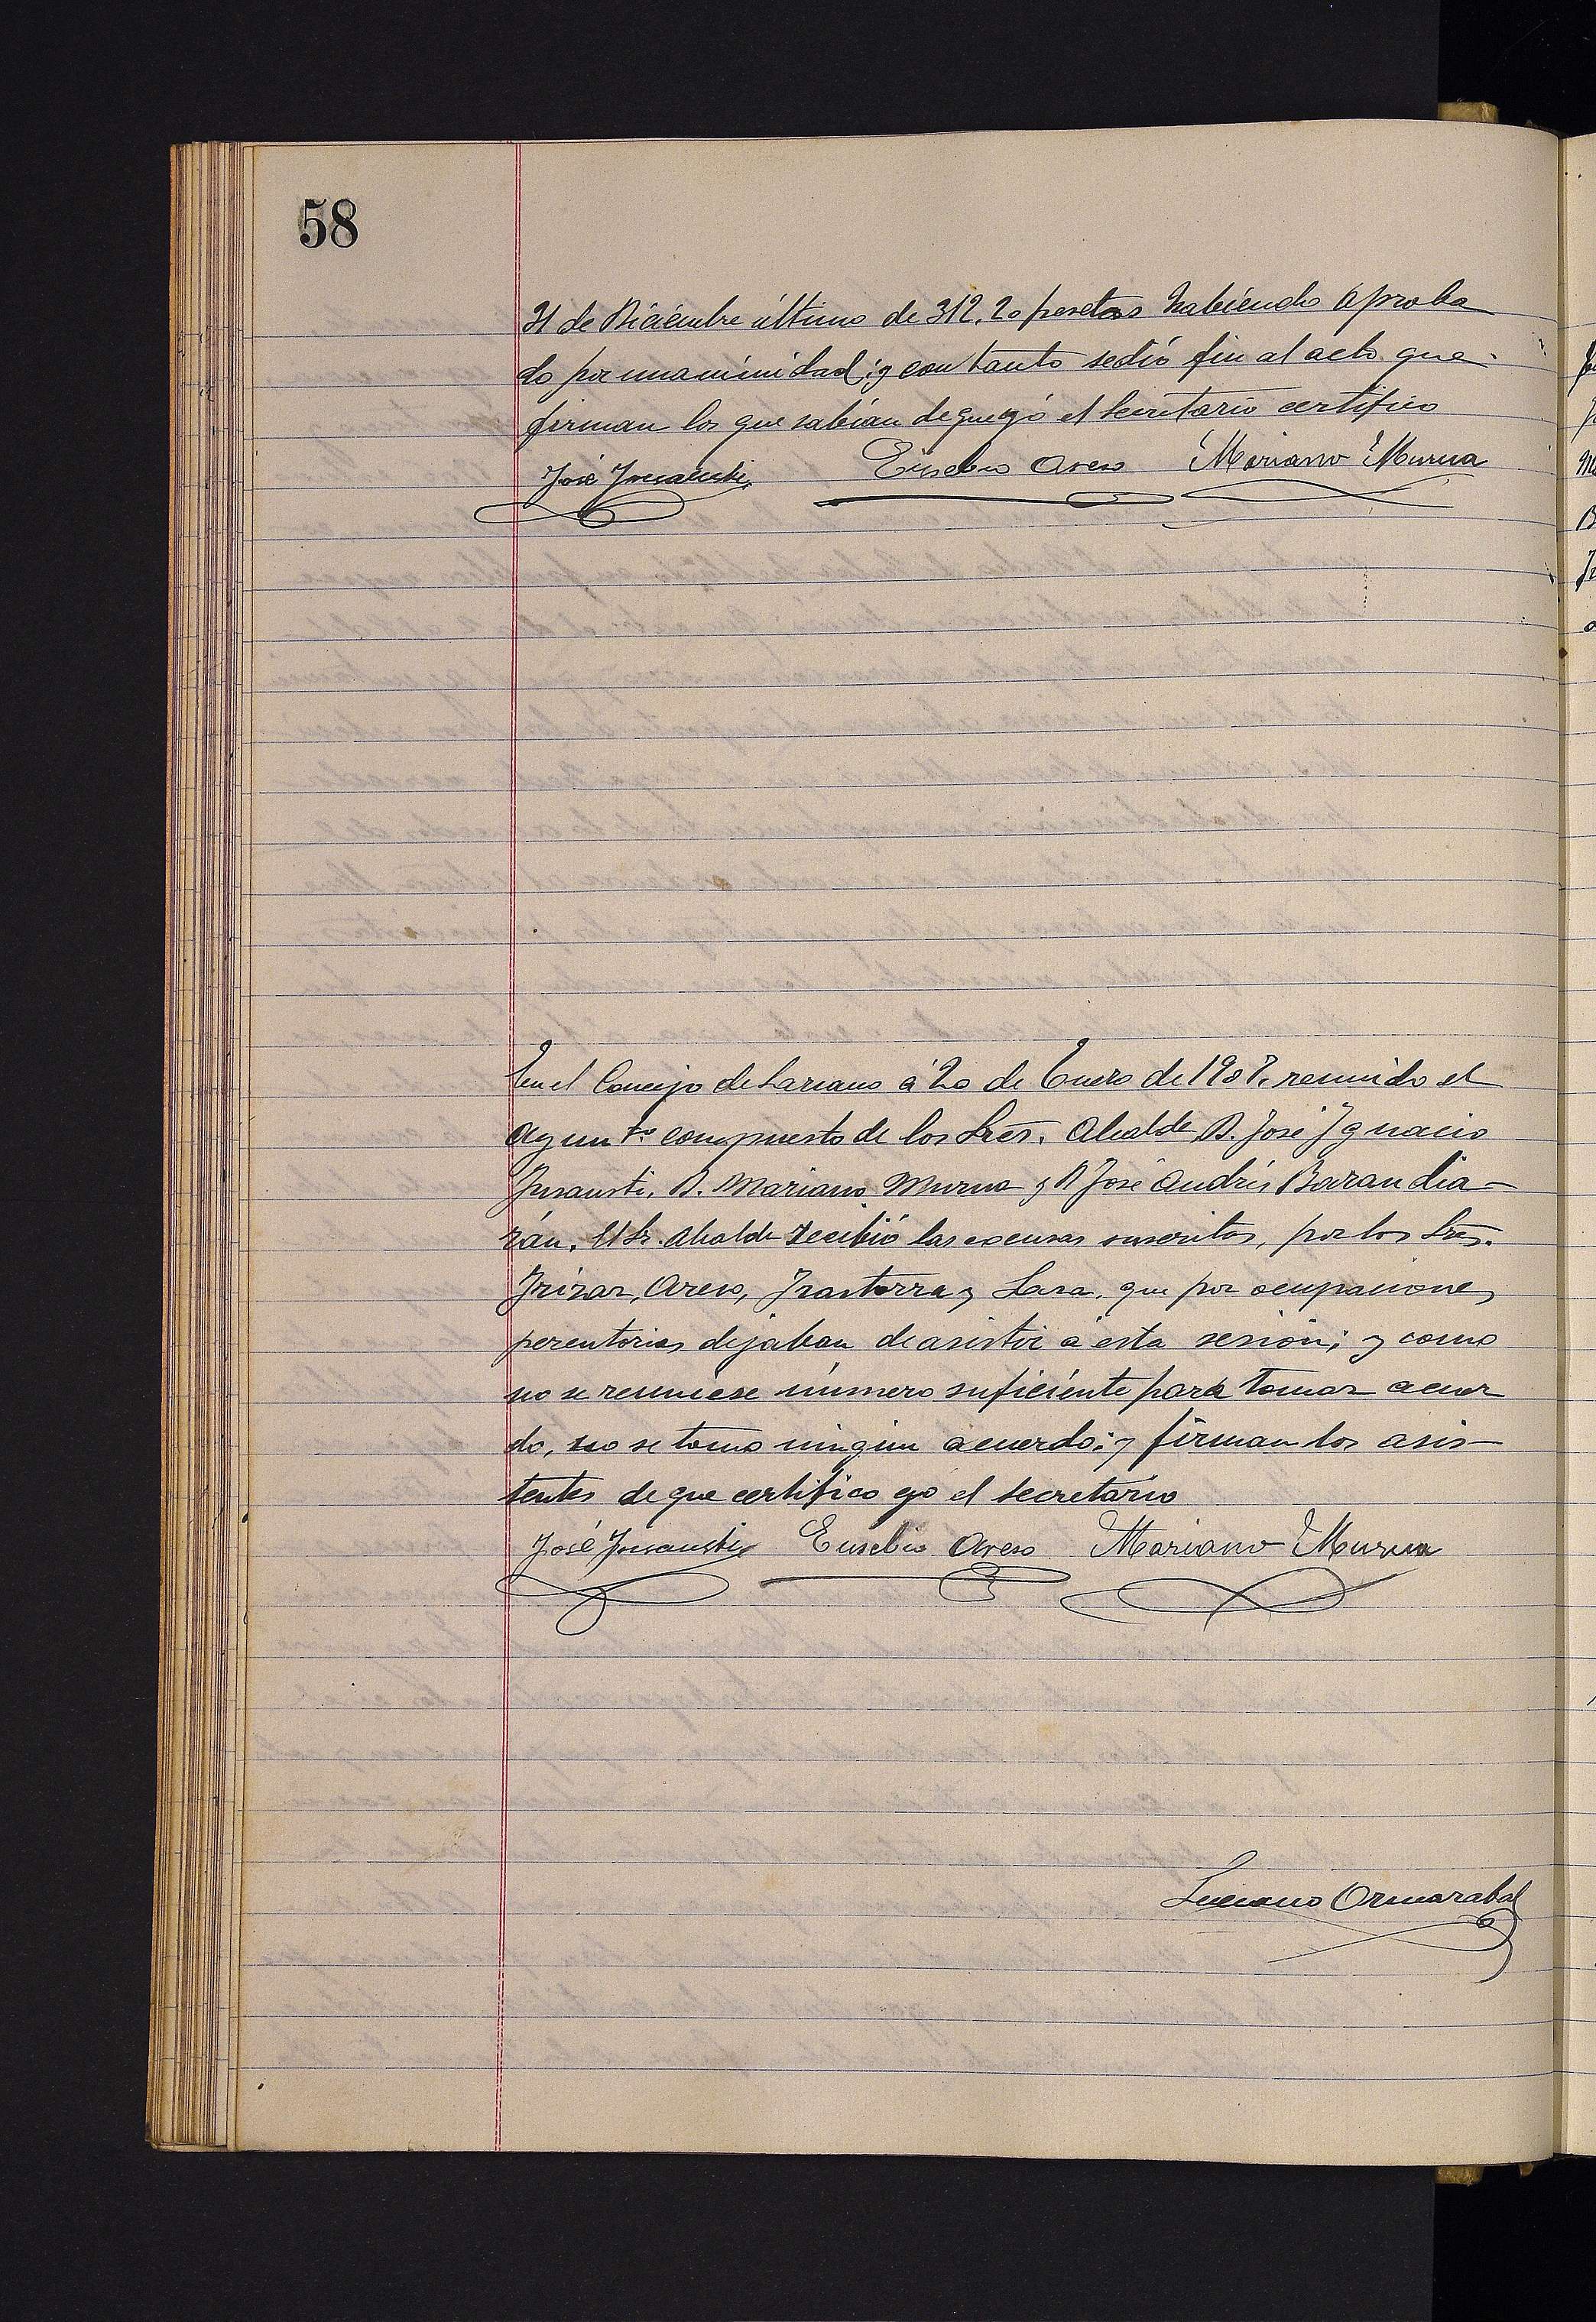 58
31 de Diciembre último de 312,20 pesetas habiendo aproba
do por unanimidad; y con tanto se dió fin al acto que
firman los que sabian de que yó el Secretario certifico
José Insausti Eusebio Areso Mariano Murua
En el Concejo de Lazcano á 20 de Enero de 1907. reunido el
Ayunto. compuesto de los Sres. Alcalde D. José Ignacio
Insausti, D. Mariano Murua y D José Andrés Barandia-
rán. El Sr. Alcalde recibió las excusas suscritas, por los Sres.
Irizar, Areso, Irastorza y Lasa, que por ocupaciones
perentorias dejaban de asistir á esta sesión; y como
no se reuniese número suficiente para tomar acuer
do, no se tomo ningun acuerdo; y firman los asis-
tentes de que certifico yo el Secretario
José Insausti Eusebio Areso Mariano Murua
Luciano Ormazabal